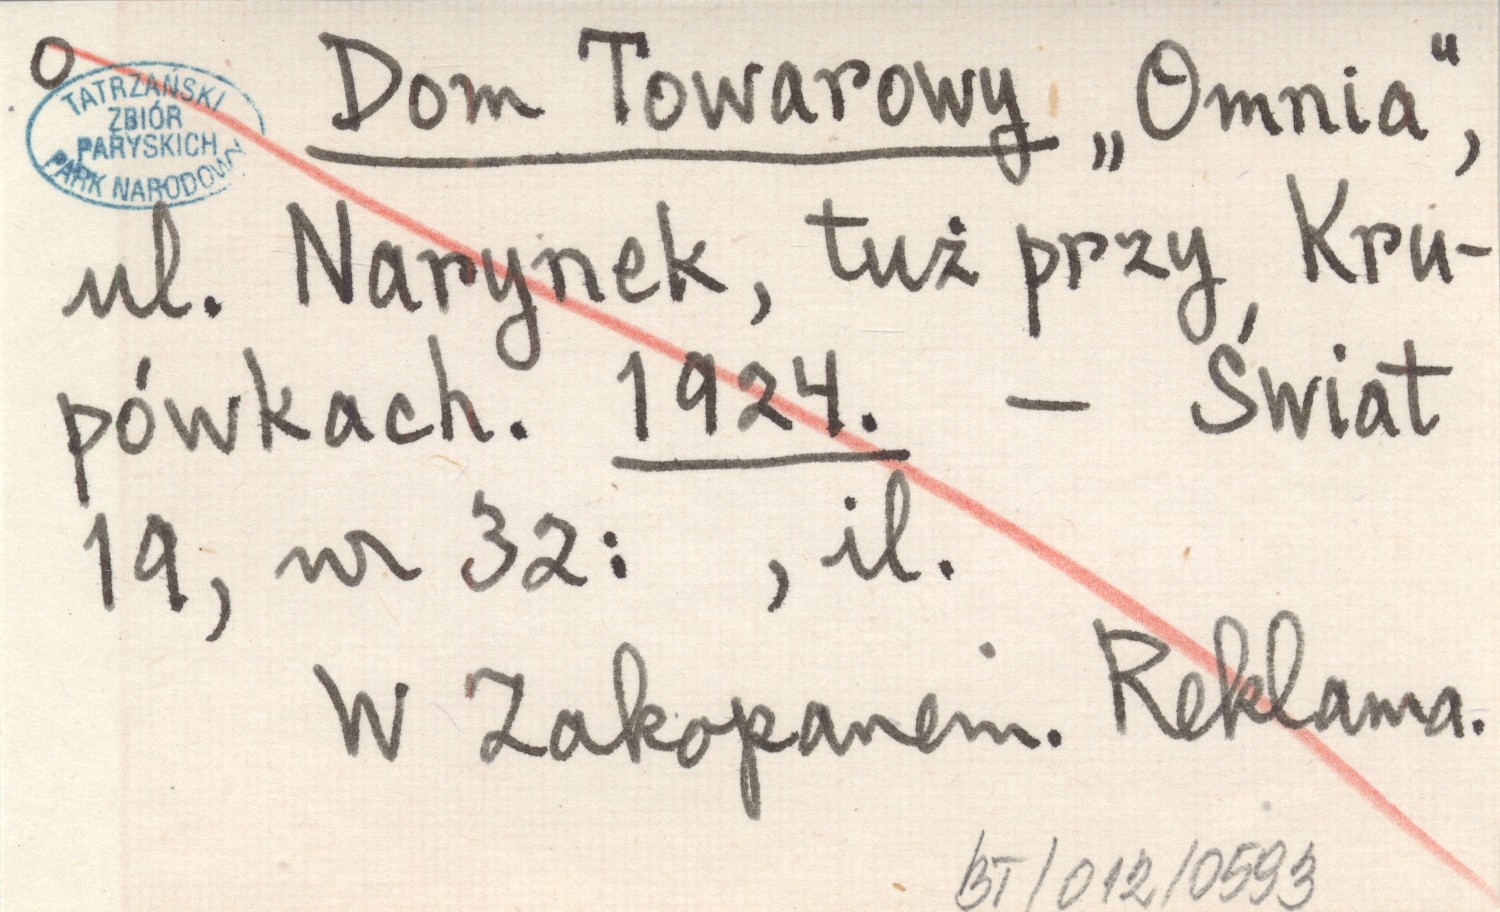 O
TATRZAŃSKI
ZBIÓR
PARYSKICH
PARK NARODOWY
Dom Towarowy „Omnia“,
ul. Narynek, tuż przy Kru-
pówkach. 1924. — Świat
19, nr 32: , il.
W Zakopanem. Reklama.
BT/012/0593